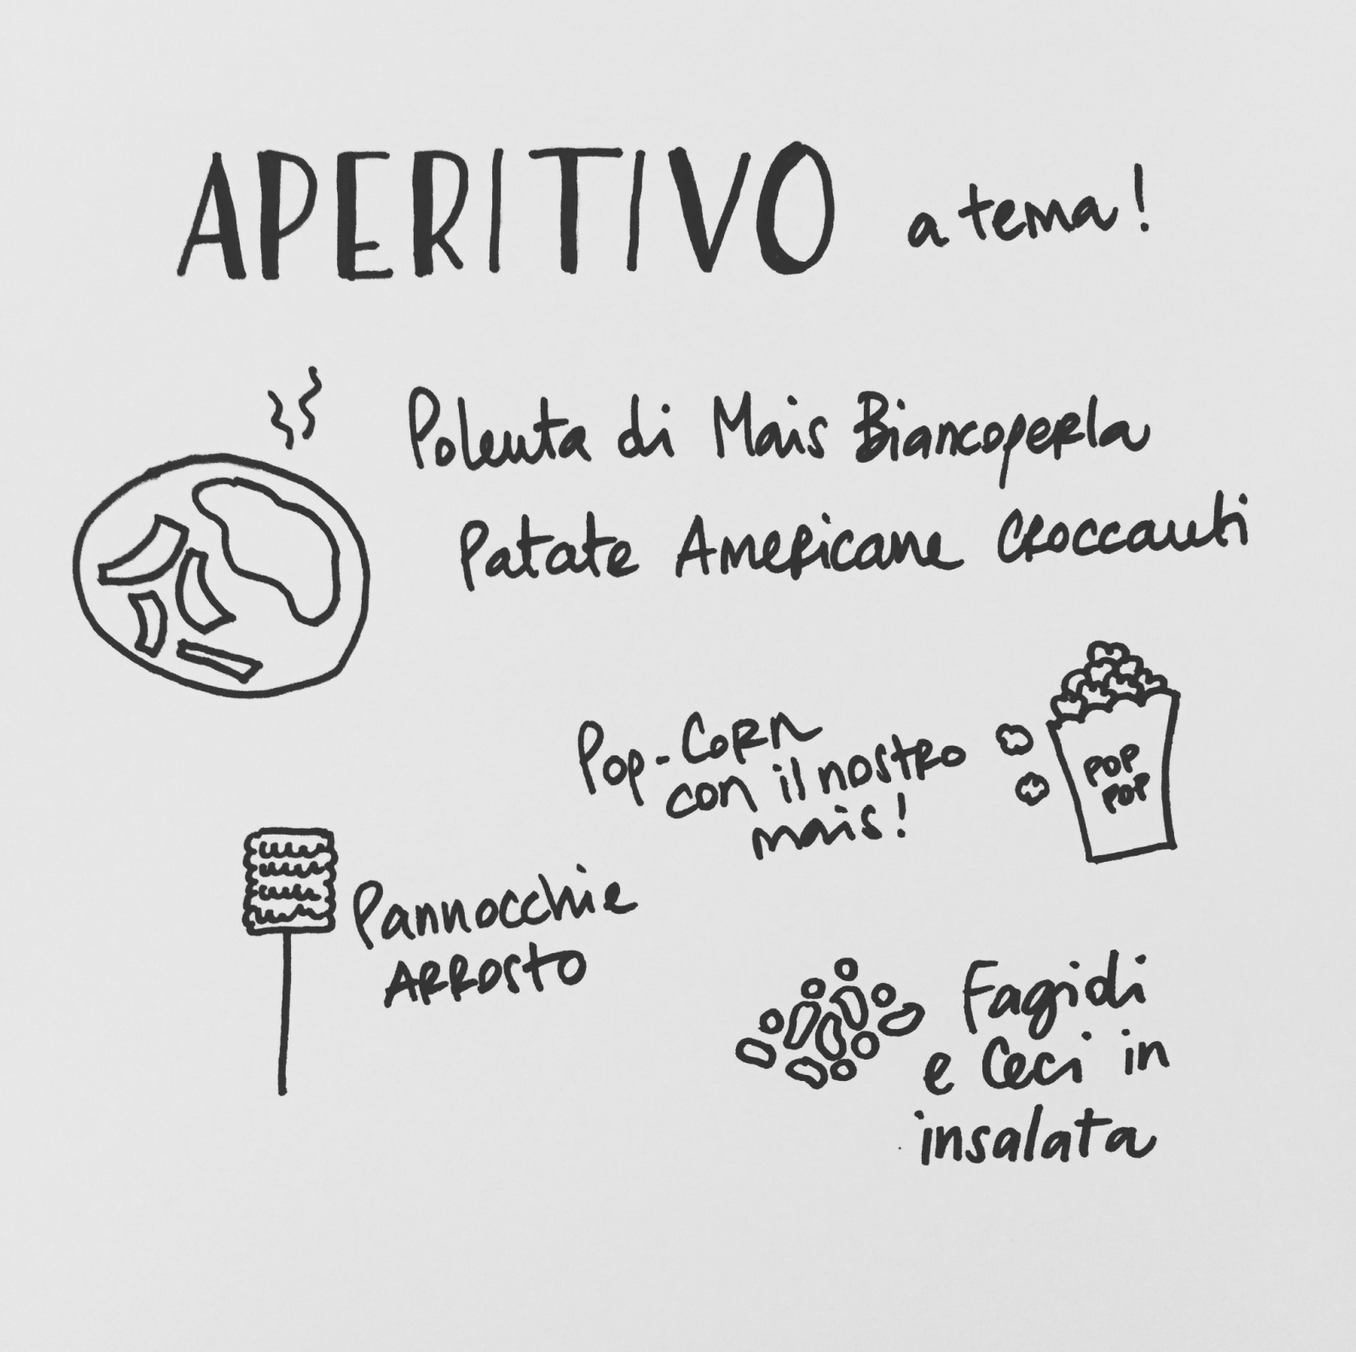 APERITIVO a tema!
Polenta di Mais Biancoperla
Patate Americane Croccanti
Pop-Corn
con il nostro
mais!
POP
POP
Pannocchie
ARROSTO
Fagioli
e Ceci in
insalata